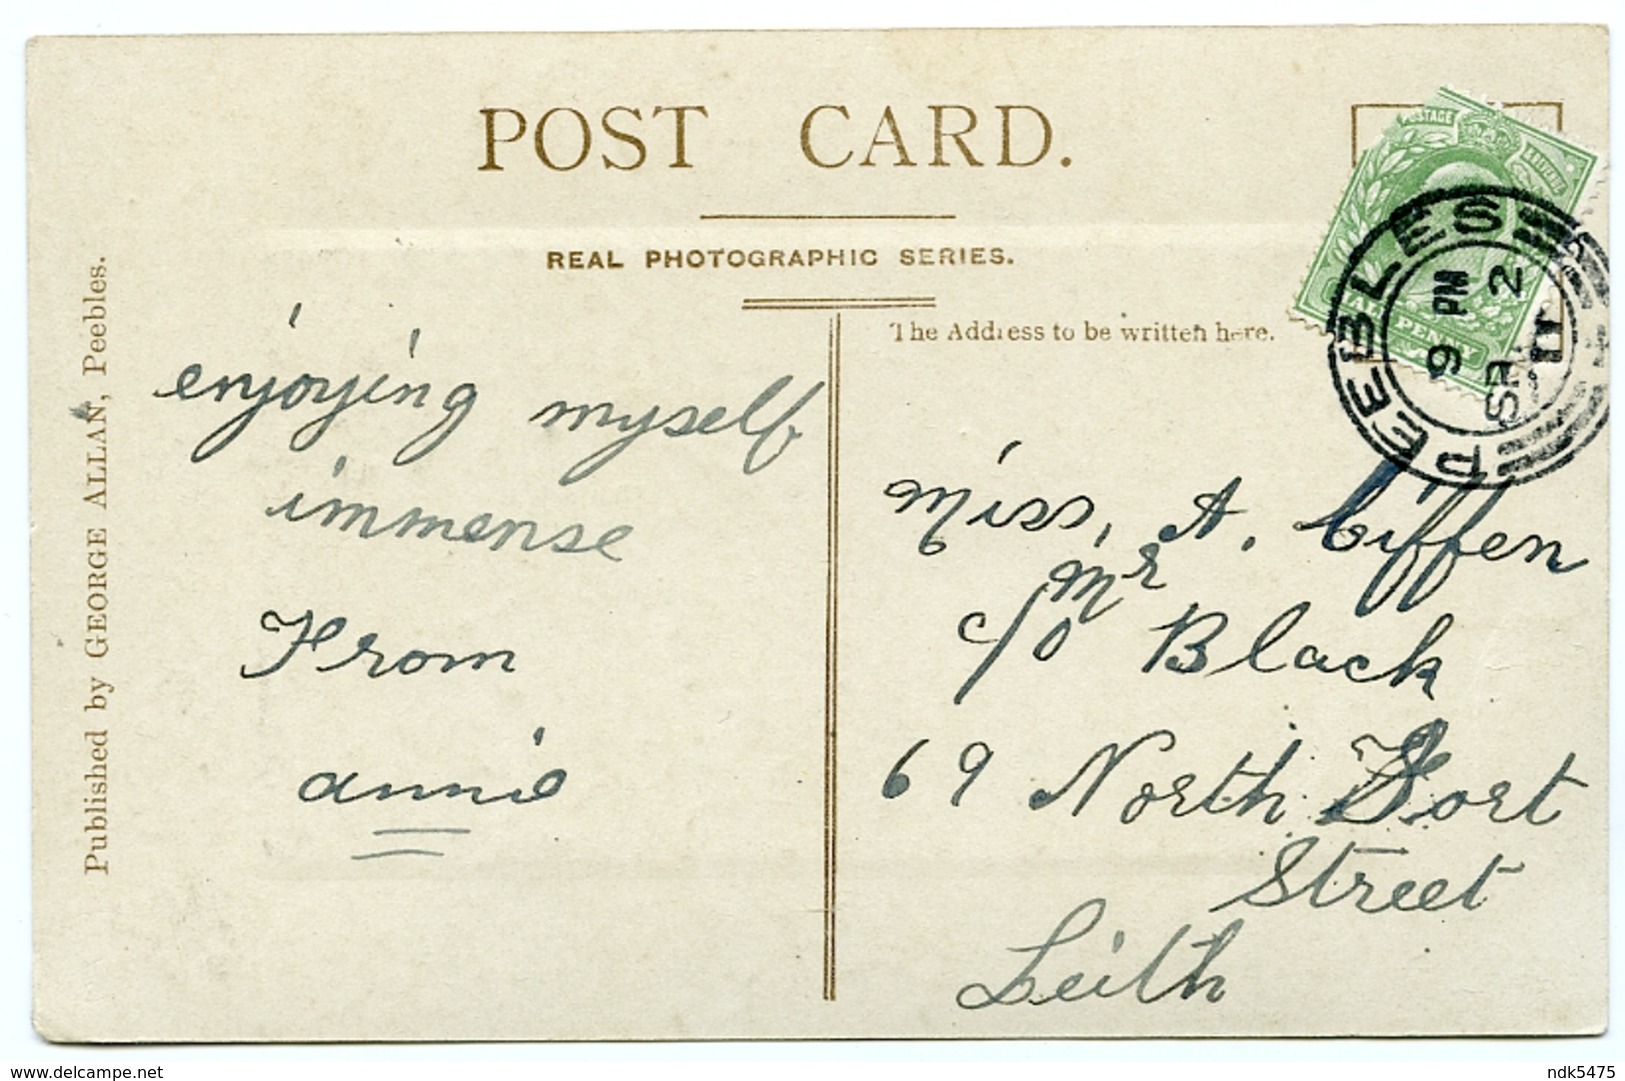 POST CARD.
REAL PHOTOGRAPHIC SERIES.
The Address to be written here.
Published by GEORGE ALLAN, Peebles.
enjoying myself
immense
From
annie
POSTAGE
REVENUE
HALFPENNY
PEEBLES
9 PM
2
11
Miss, A. Giffen
c/o Mr Black
69 North Fort
Street
Leith
www.delcampe.net
ndk5475